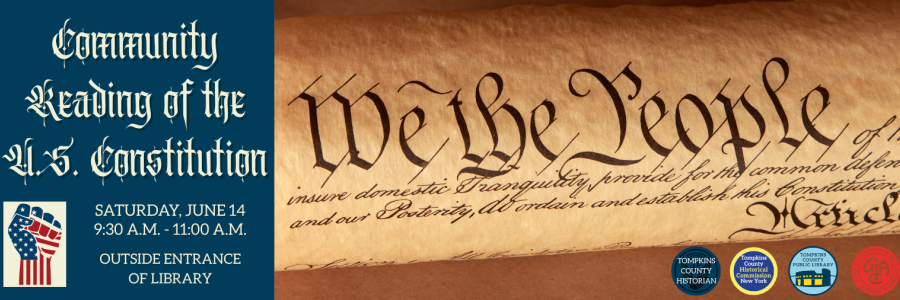 Community
Reading of the
U.S. Constitution
SATURDAY, JUNE 14
9:30 A.M. - 11:00 A.M.
OUTSIDE ENTRANCE
OF LIBRARY
We the People
of
insure domestic Tranquility, provide for the common defen
and our Posterity, do ordain and establish this Constitution
Articl
TOMPKINS
COUNTY
HISTORIAN
Tompkins
County
Historical
Commission
New York
TOMPKINS COUNTY
PUBLIC LIBRARY